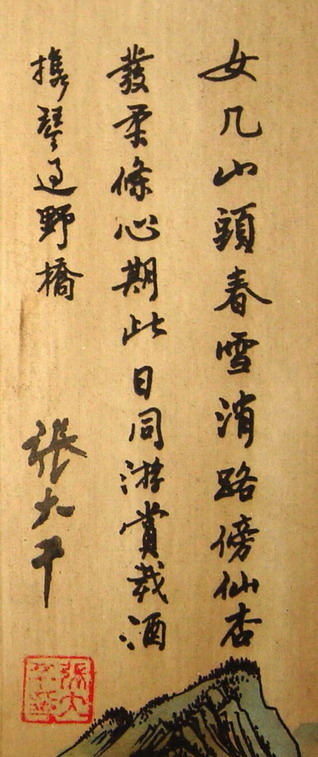 女几山頭春雪消路傍仙杏
發柔條心期此日同游賞載酒
攜琴過野橋
張大千
張大
千璽